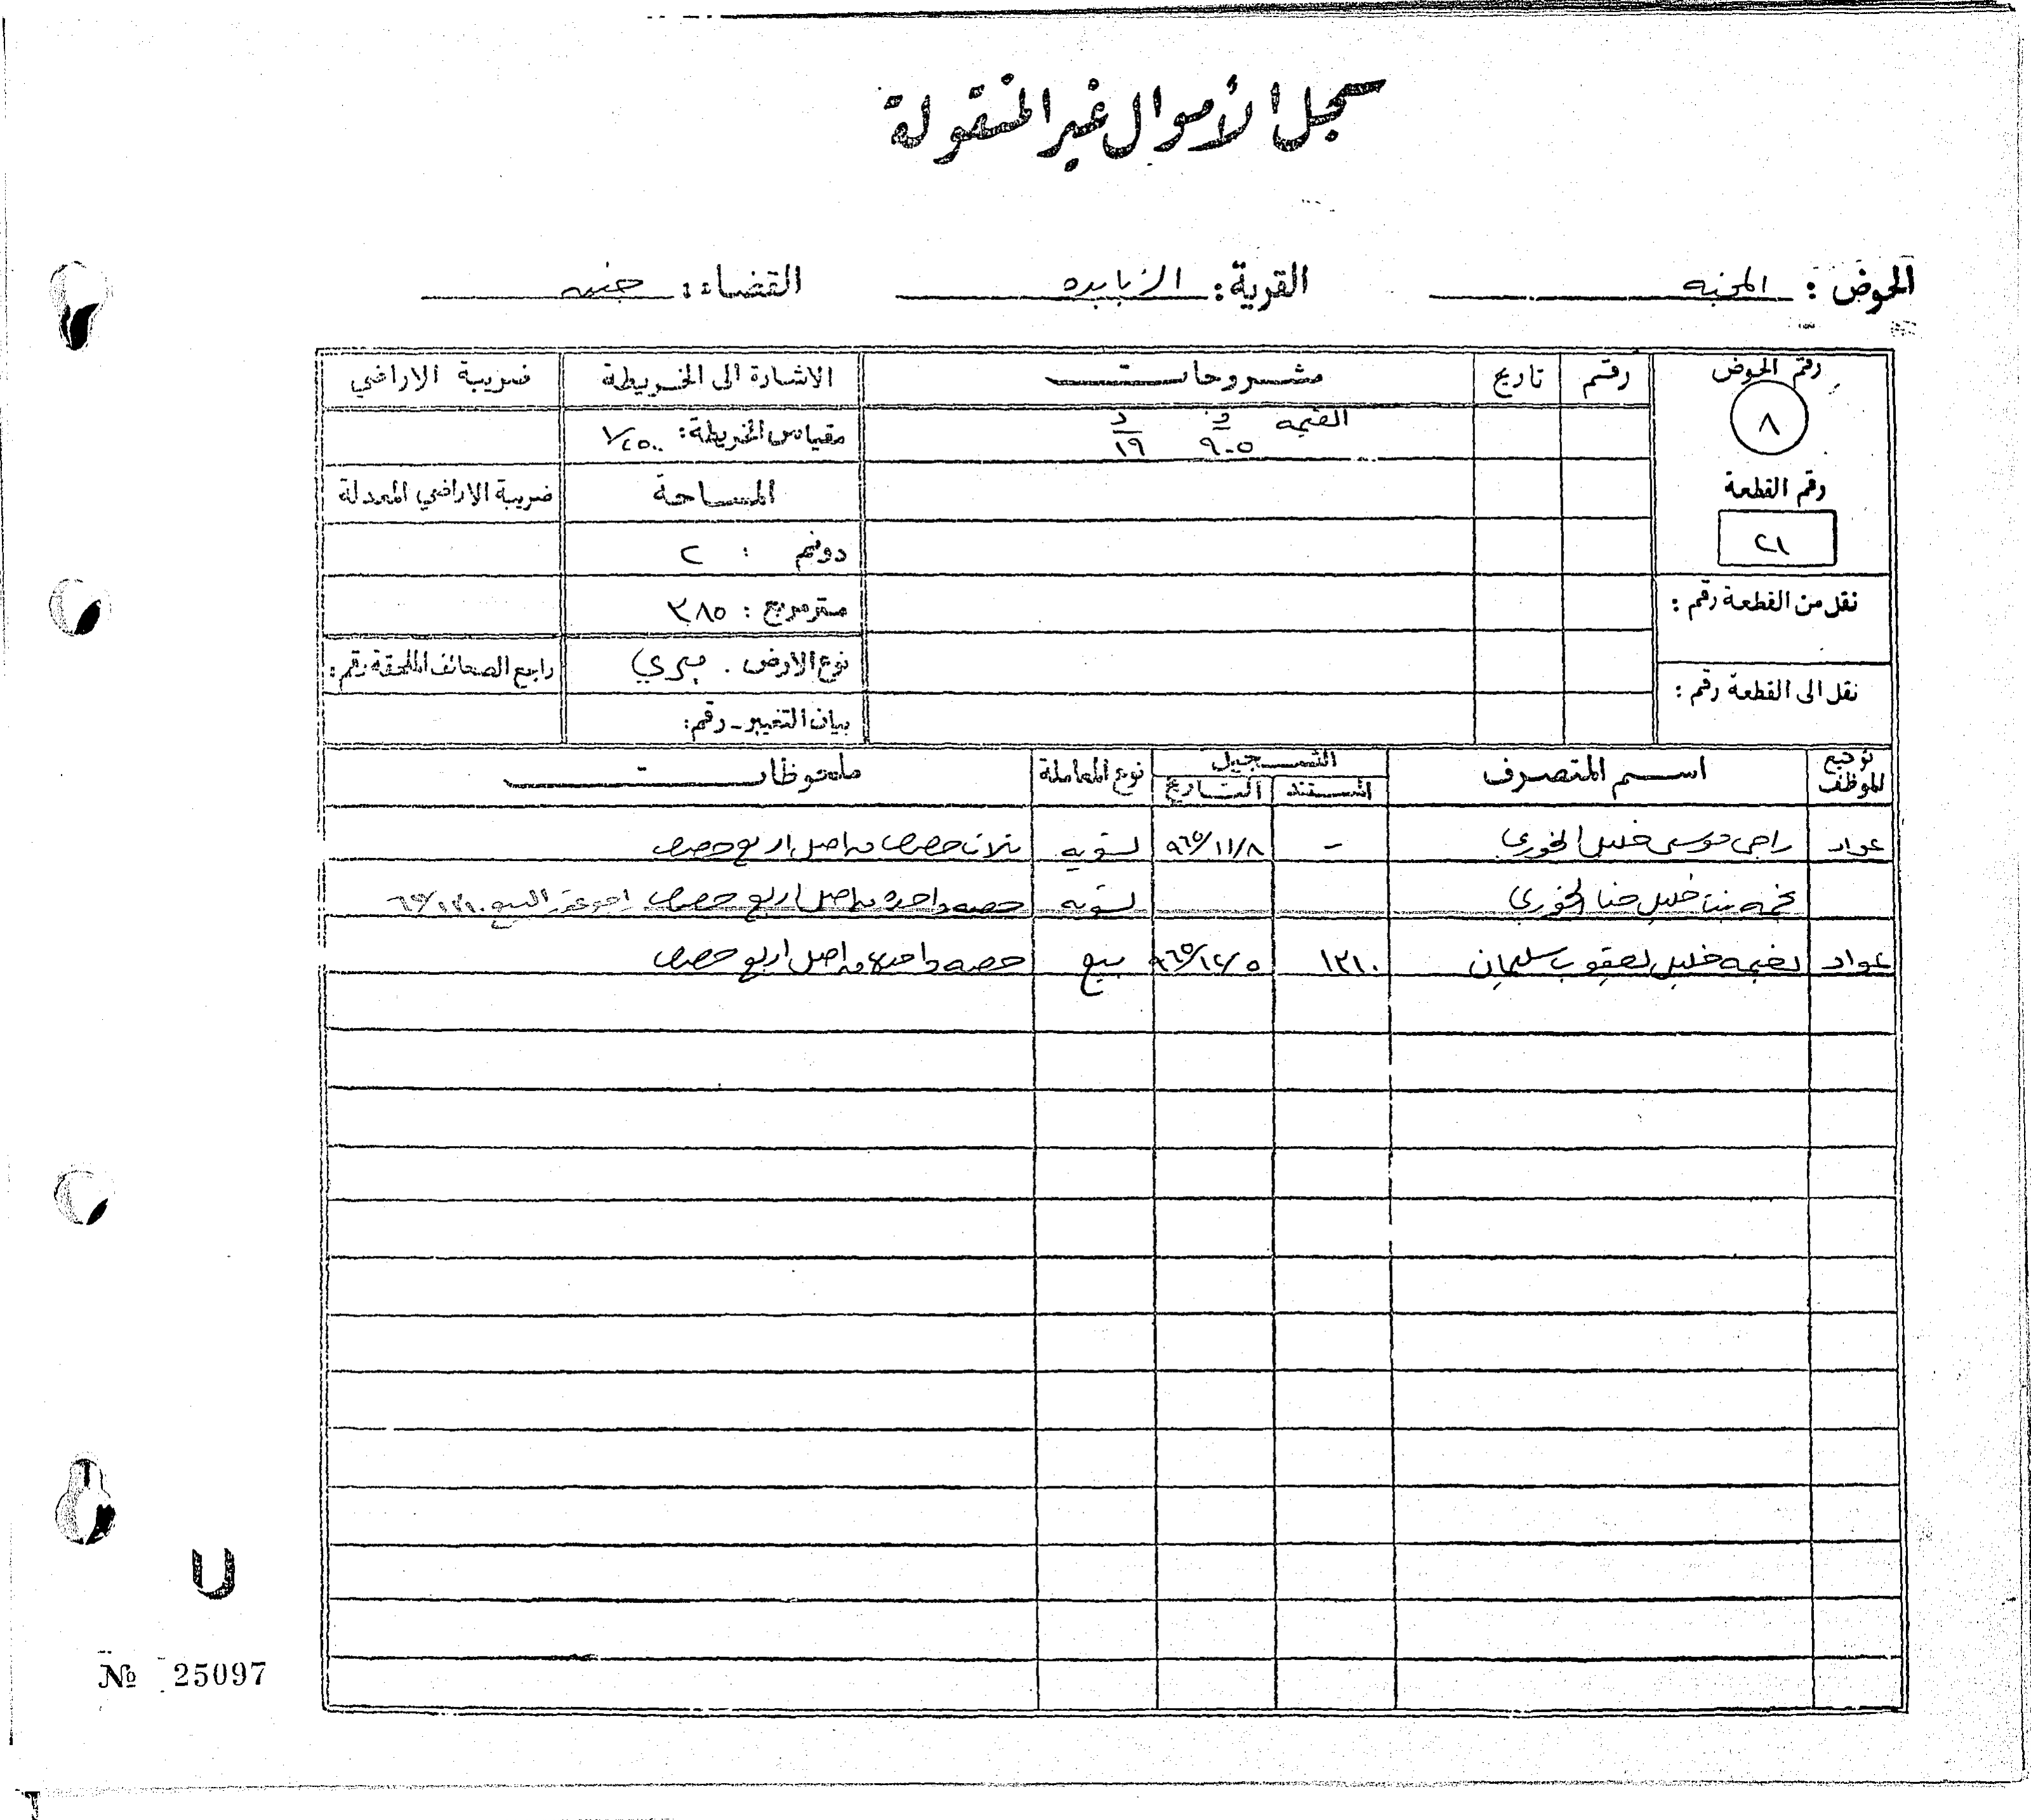 سجل الأموال غير المنقولة
الحوض : المخبه القرية : الزبابده القضاء : جنين
رقم الحوض رقم تاريخ مشروحات الاشارة الى الخريطة ضريبة الاراضي
٨ القيمه ف ٩٠٥ د ١٩ مقياس الخريطة : ١/٢٥٠٠
رقم القطعة المساحة ضريبة الاراضي المعدلة
٢١ دونم : ٢
نقل من القطعة رقم : متر مربع : ٣٨٥
نوع الارض . ميري راجع الصحائف الملحقة رقم :
نقل الى القطعة رقم : بيان التغيير - رقم :
توقيع الموظف اسم المتصرف التسجيل نوع المعاملة ملحوظات
المستند التاريخ
عواد راجي موسى خليل الخوري - ٩٦٥/١١/٨ تسويه ثلاث حصص من اصل اربع حصص
نجمه بنت خليل حنا الخوري تسويه حصه واحده من اصل اربع حصص
عواد نعيمه خليل يعقوب سليمان ١٢١٠ ٩٦٥/١٢/٥ بيع حصه واحده من اصل اربع حصص
№ 25097